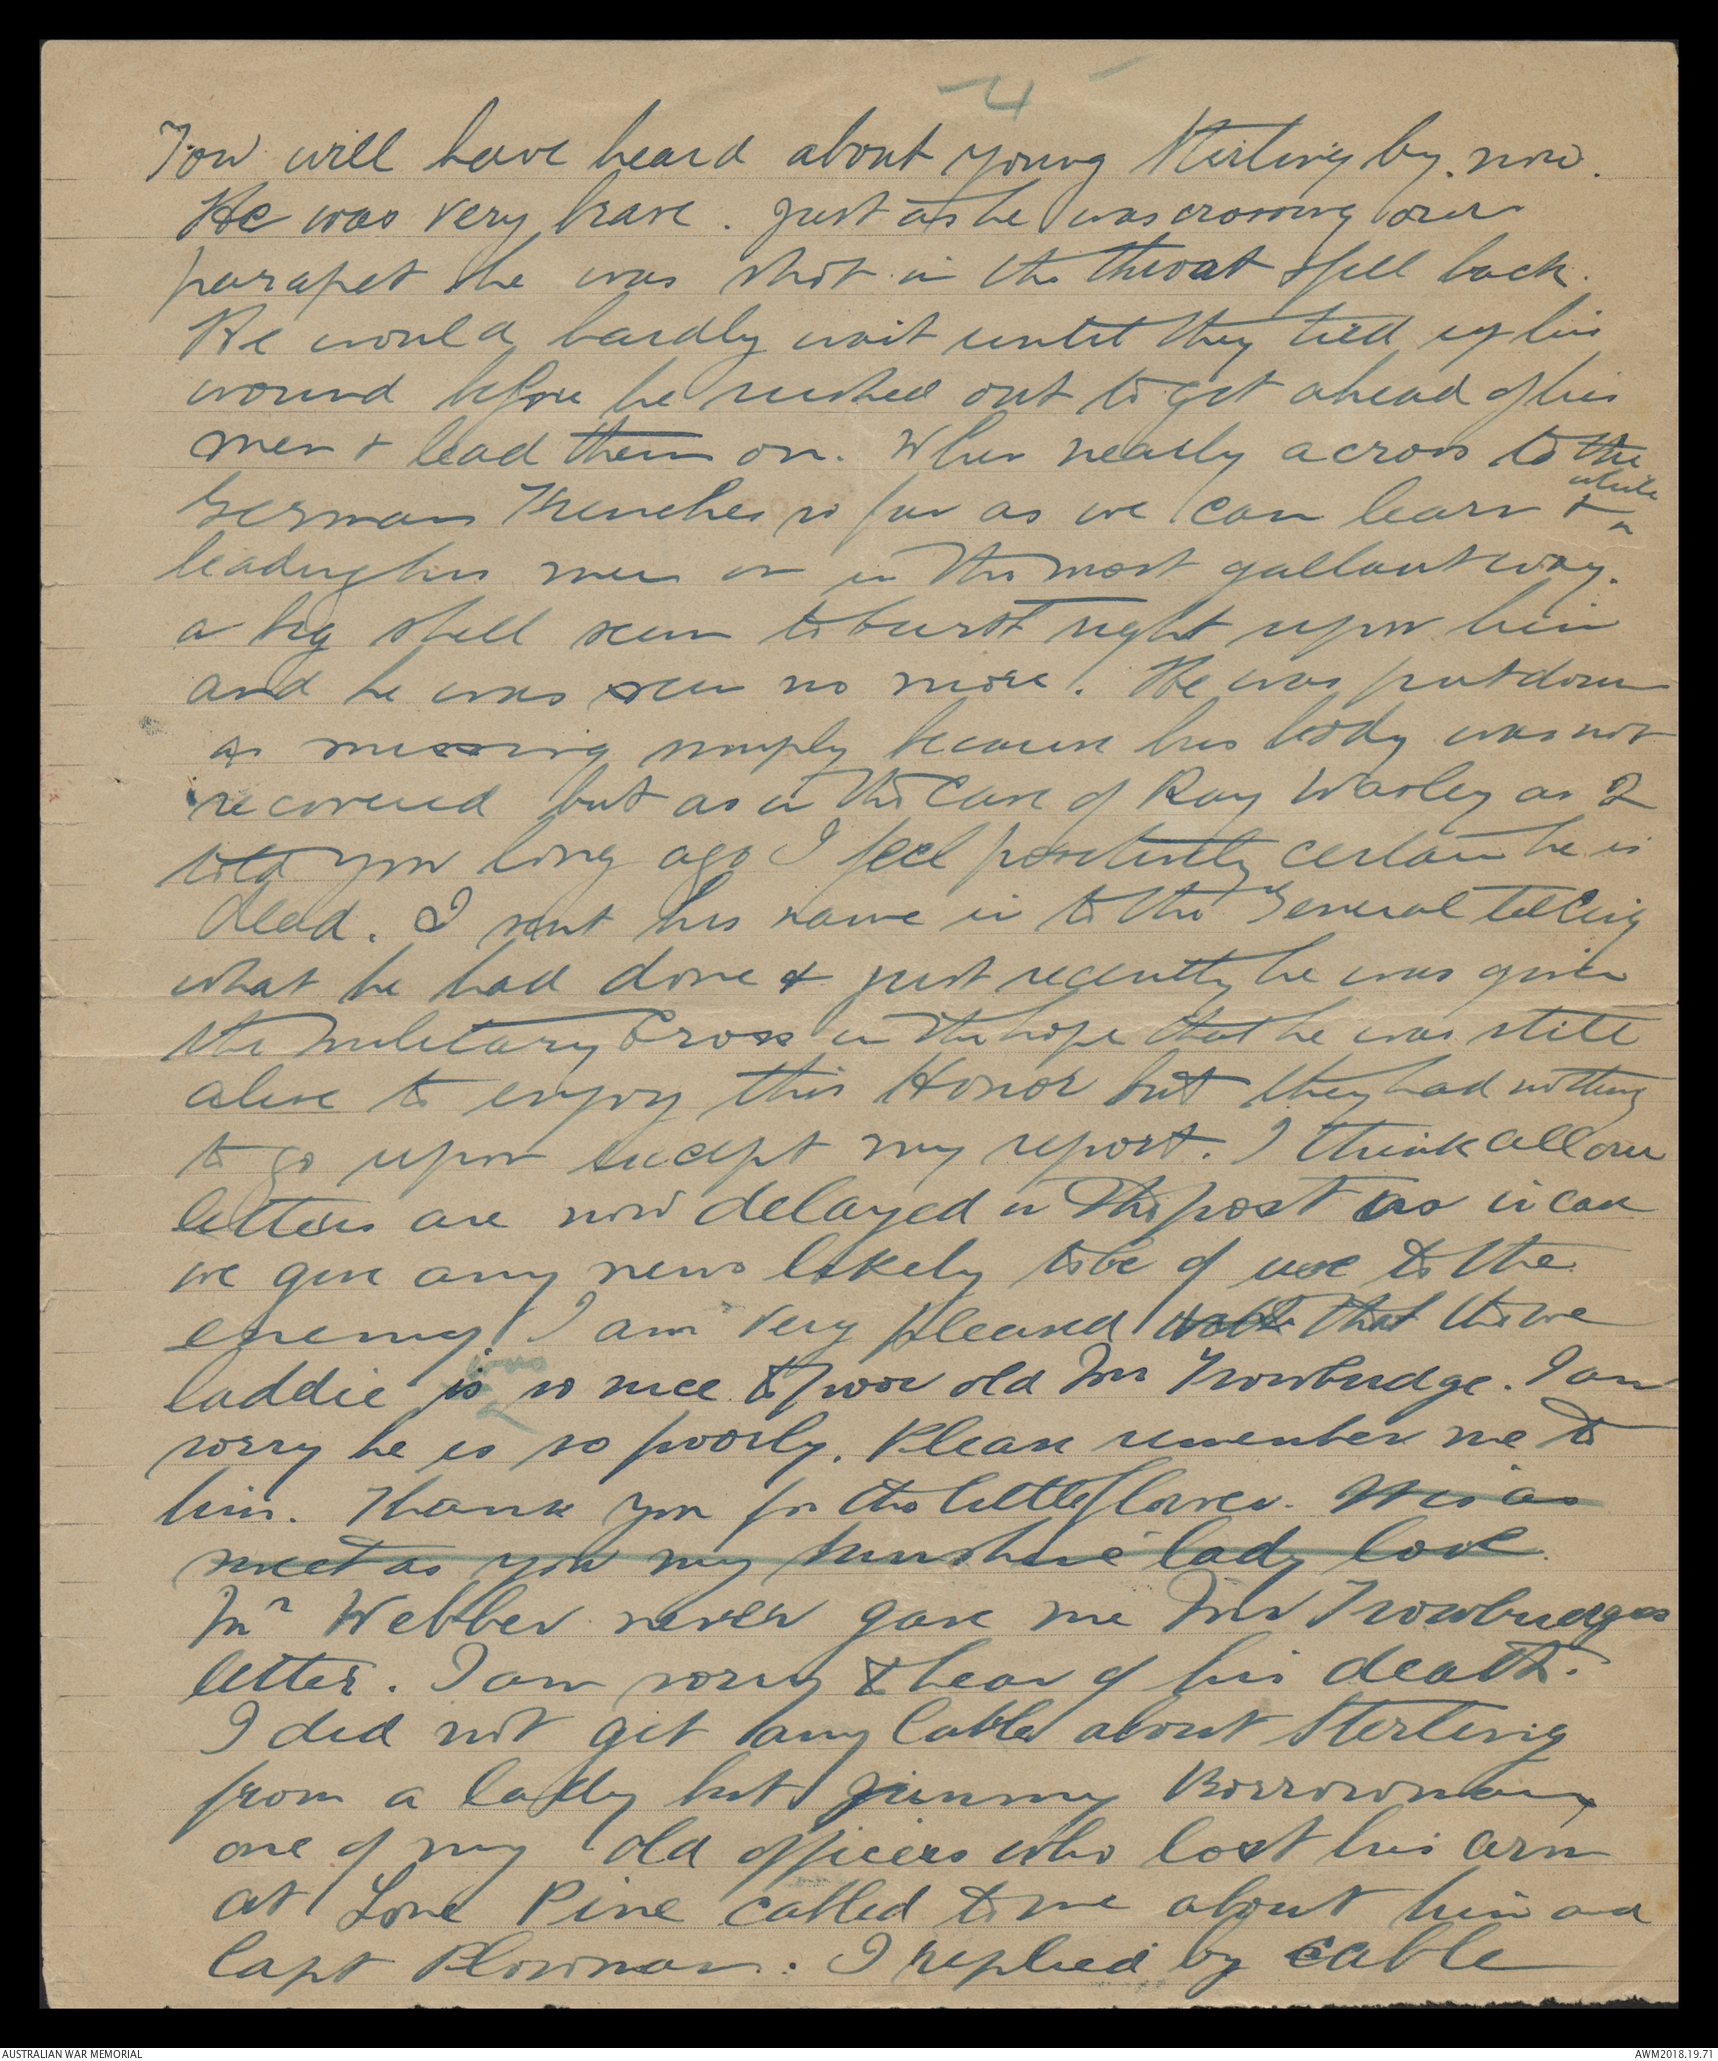 4
You will have heard about young Sterling by now.
He was very brave. Just as he was crossing over
parapet he was shot in the throat & fell back.
He would hardly wait until they tied up his
wound before he rushed out to get ahead of his
men & lead them on. When nearly across to the
German Trenches so far as we can learn & while
leading his men on in the most gallant way.
a big shell seem to burst right upon him
and he was seen no more. He was put down
as missing simply because his body was not
recovered but as in the case of Ray Warley as I
told you long ago I feel positively certain he is
dead. I sent his name in to the General telling
what he had done & just recently he was given
the Military Cross in the hope that he was still
alive to enjoy this Honor but they had nothing
to go upon except my report. I think all our
letters are now delayed in the post as in case
we give any news likely to be of use to the
enemy. I am very pleased that the wee
laddie is was so nice to poor old Mr Trowbridge. I am
sorry he is so poorly. Please remember me to
him. Thank you for the little flower. It is as
sweet as you my sunshine lady love.
Mr Webber never gave me Mr Trowbridges
letter. I am sorry to hear of his death.
I did not get any Cable about Sterling
from a lady but Jimmy Borrowman,
one of my old officers who lost his arm
at Lone Pine cabled to me about him and
Capt Plowman. I replied by cable
AUSTRALIAN WAR MEMORIAL
AWM2018.19.71